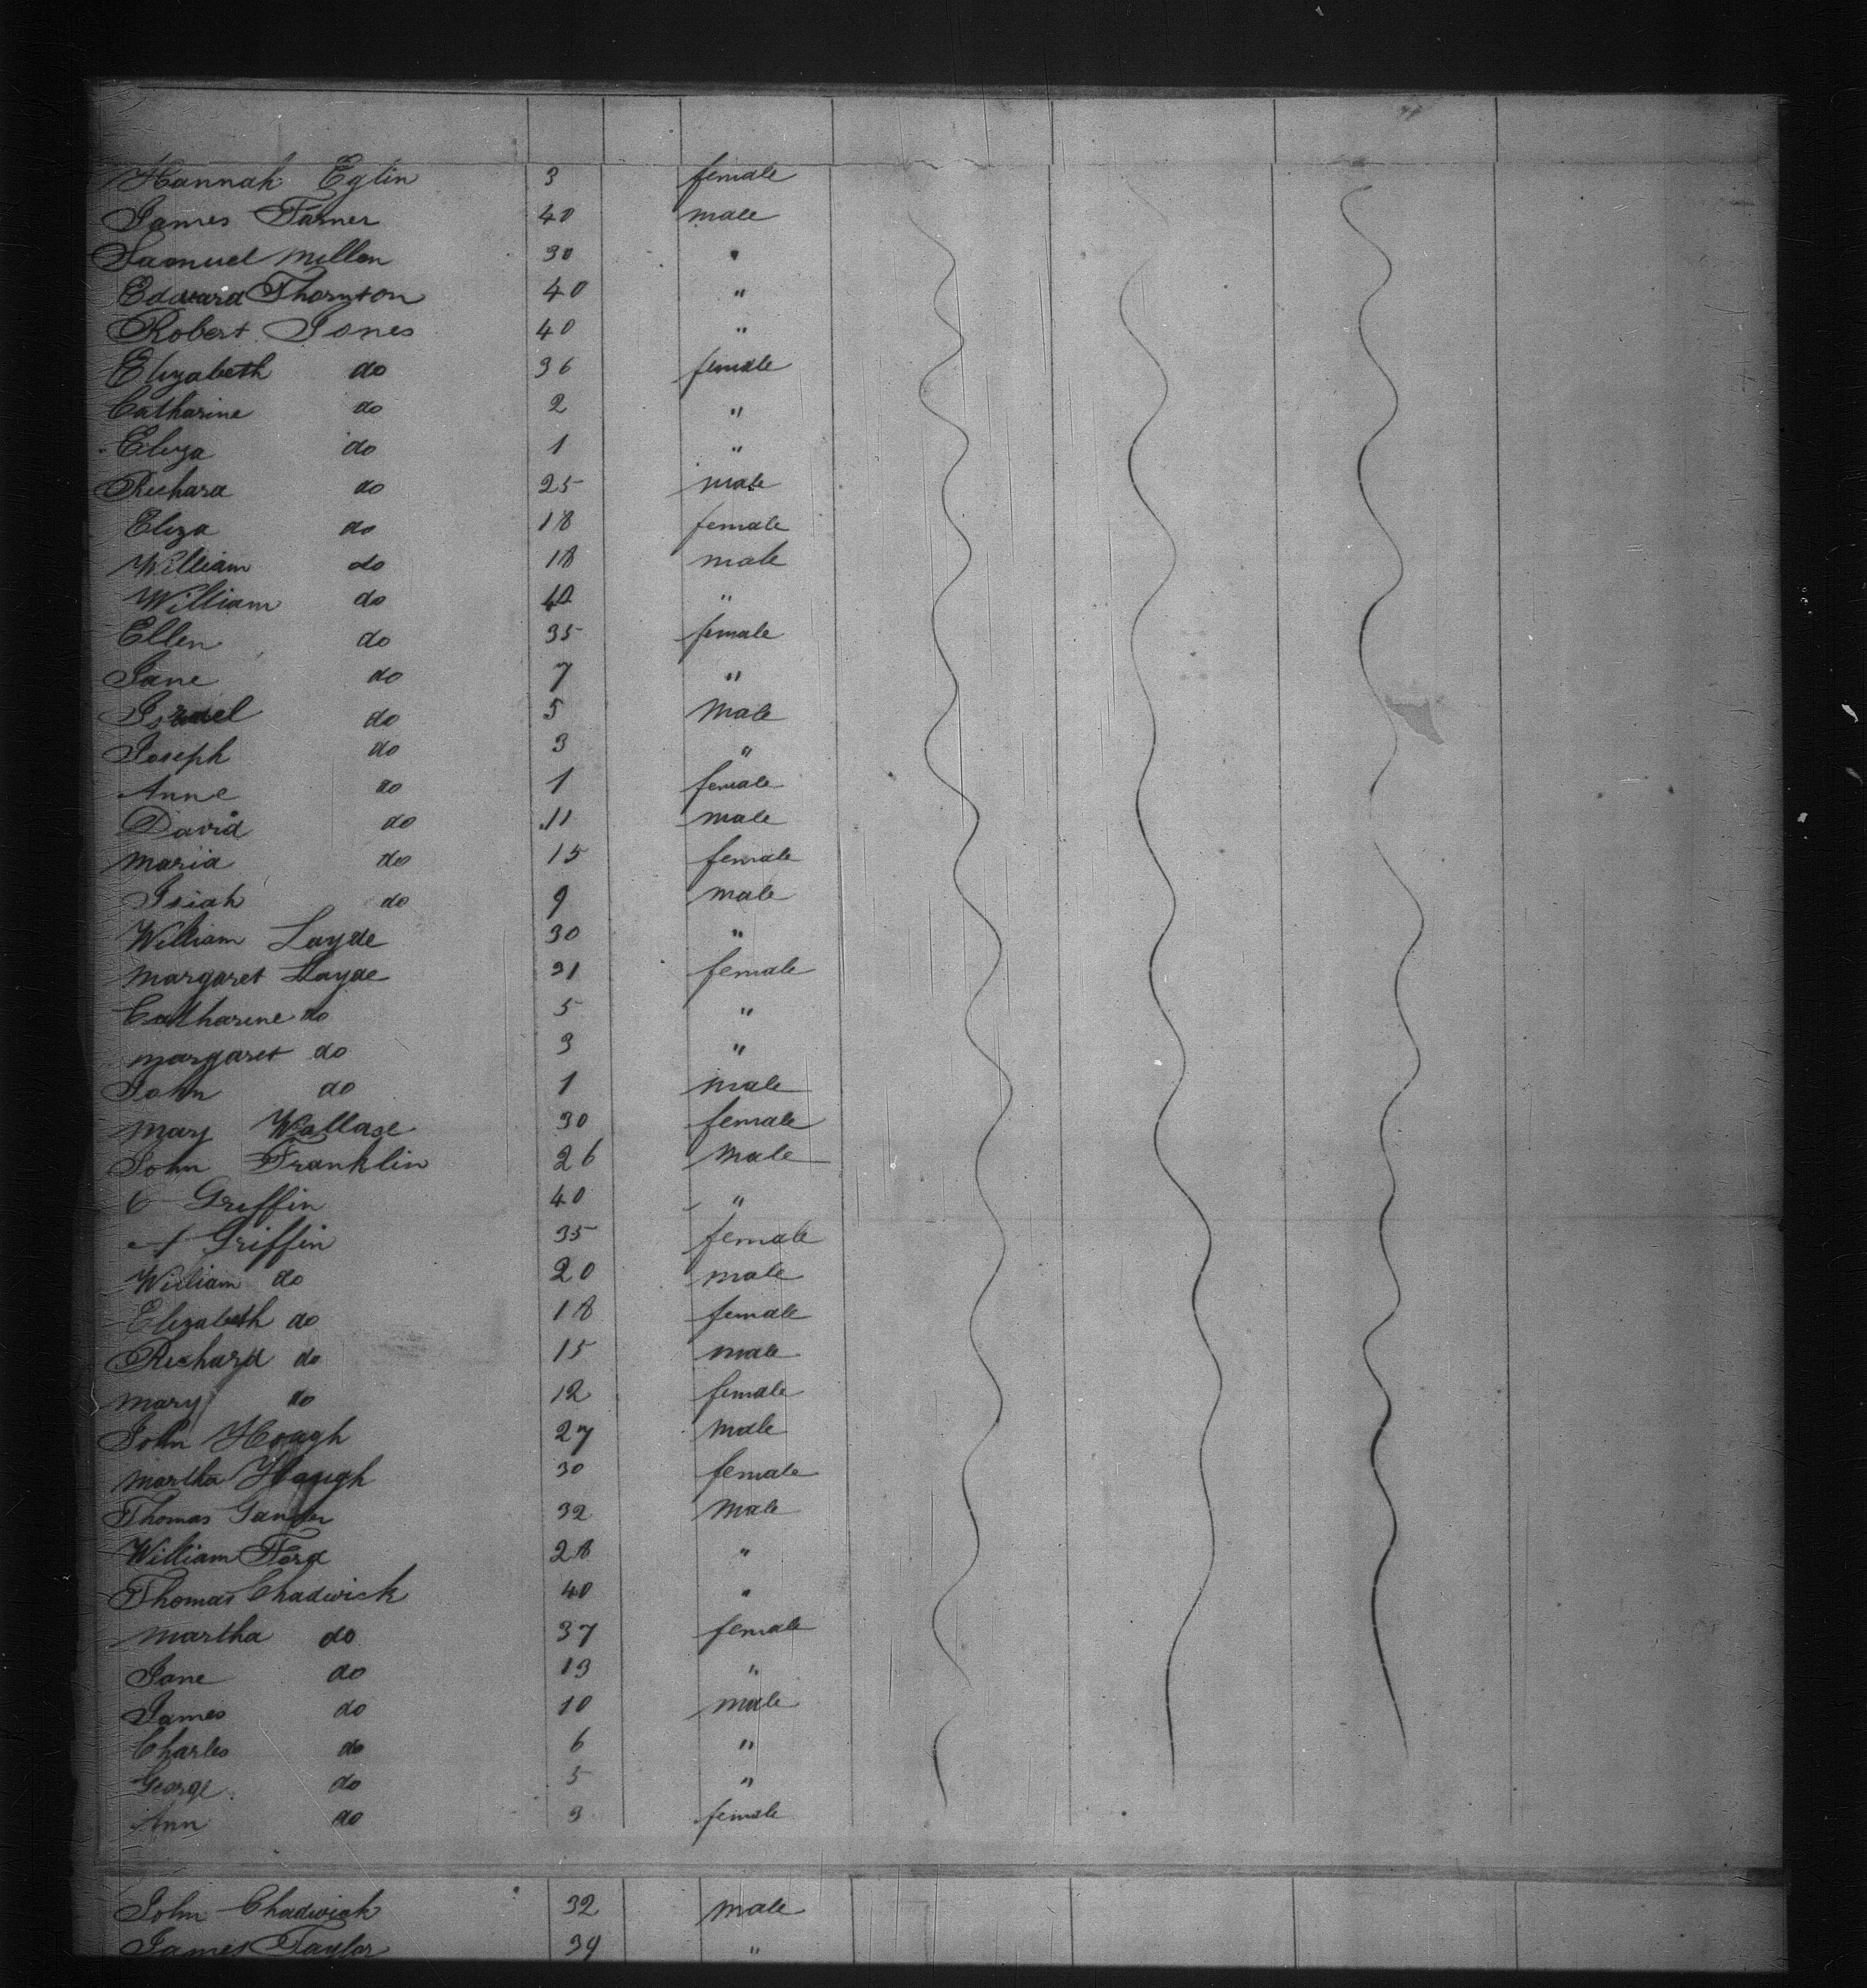 Hannah Eglin 3 female
James Farner 40 male
Samuel Millen 30 "
Edward Thornton 40 "
Robert Jones 40 "
Elizabeth do 36 female
Catharine do 2 "
Eliza do 1 "
Richard do 25 male
Eliza do 18 female
William do 18 male
William do 40 "
Ellen do 35 female
Jane do 7 "
Israel do 5 male
Joseph do 3 "
Anne do 1 female
David do 11 male
Maria do 15 female
Isiah do 9 male
William Layde 30 "
Margaret Layde 31 female
Catharine do 5 "
Margaret do 3 "
John do 1 male
Mary Wallace 30 female
John Franklin 26 male
C Griffin 40 "
A Griffin 35 female
William do 20 male
Elizabeth do 18 female
Richard do 15 male
Mary do 12 female
John Hough 27 male
Martha Hough 30 female
Thomas 32 male
William Ford 28 "
Thomas Chadwick 40 "
Martha do 37 female
Jane do 13 "
James do 10 male
Charles do 6 "
George do 5 "
Ann do 3 female
John Chadwick 32 male
James Taylor 39 "